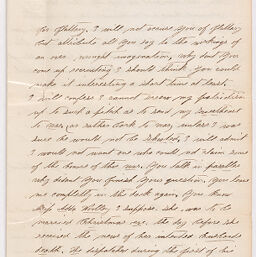 for flattery, I will not accuse you of flattery
but attribute all you say to the workings of
an over wrought imagination, why dont you
come up recruiting I should think you could
make it interesting a short time at least.
I will confess I cannot screw my patriotism
up to such a pitch as to send my sweetheart
to war, or rather Coach to war, unless I was
sure he would not be shackled, I will admit
I would not want one who could not claim some
of the honors of this war. You talk in parables
why didnt you finish your question, you leave
me completely in the dark again, You know
Miss Abbie I suppose, she was to be
married Christmas eve. the day before she
received the news of her intended husbands
death. He dispatches during the first of his